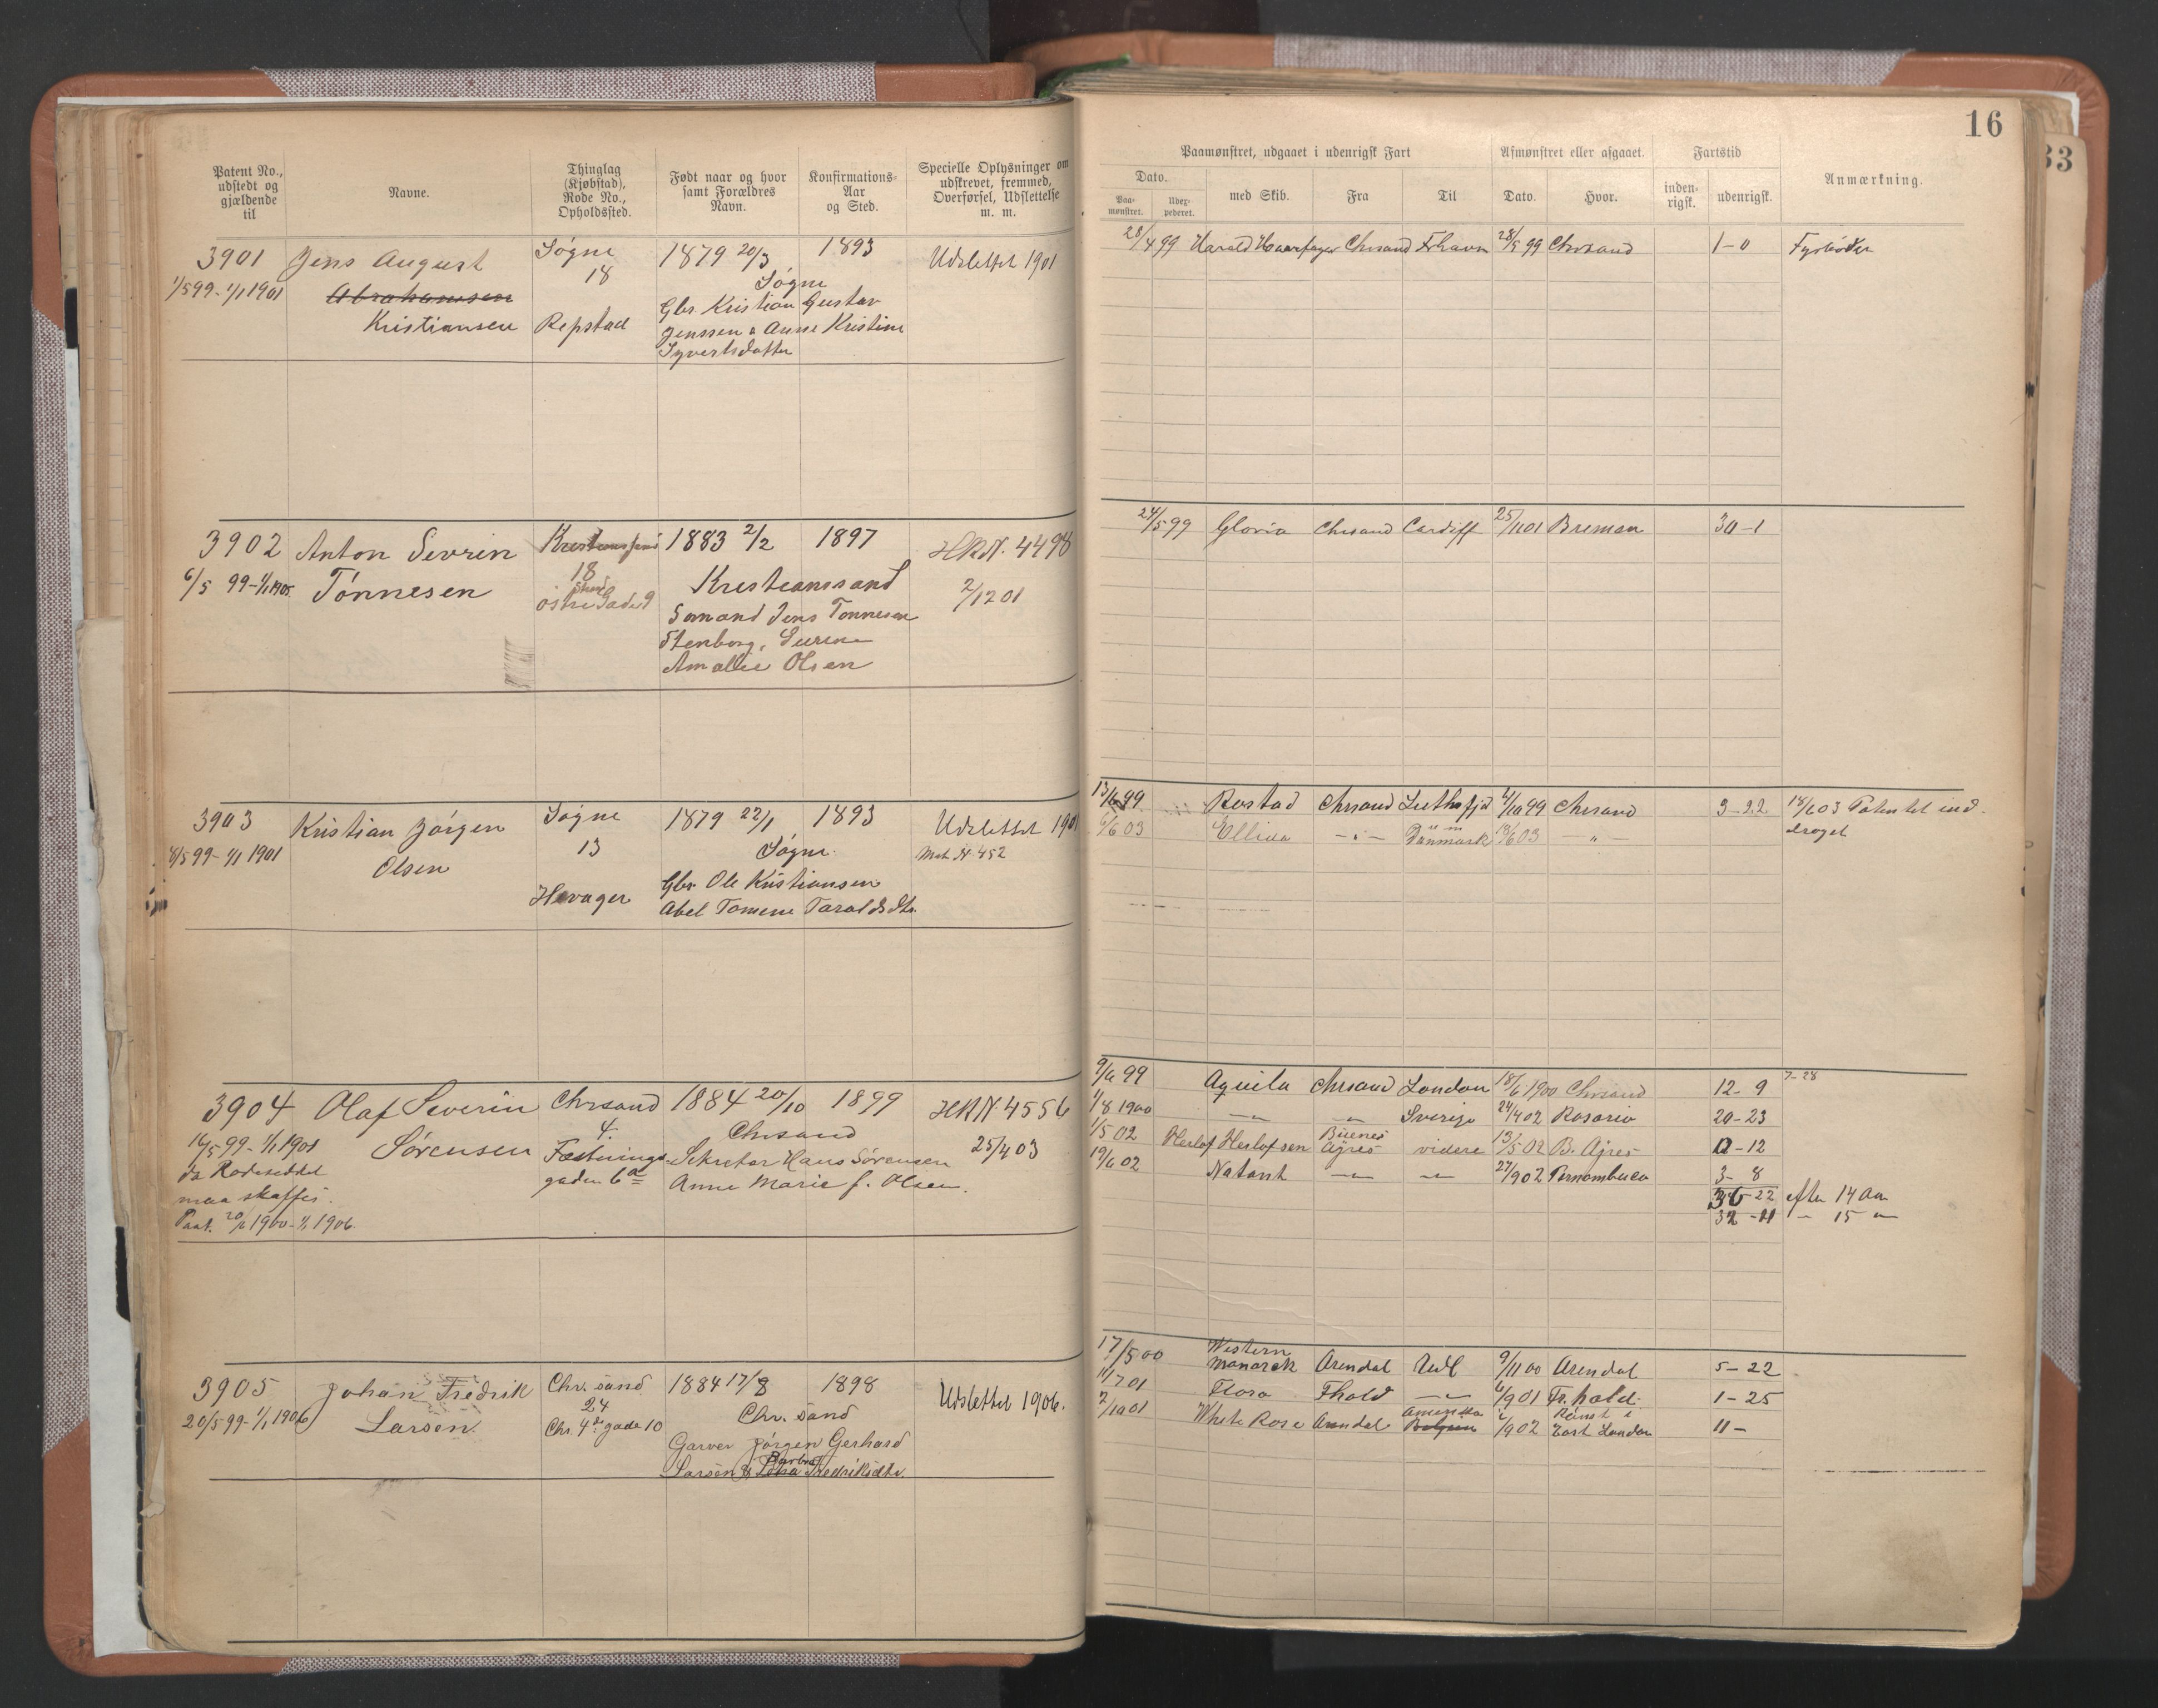 Patent No., udstedt og gjældende til
Navne.
Thinglag (Kjøbstad), Rode No., Opholdssted.
Født naar og hvor samt Forældres Navn.
Konfirmations-Aar og Sted.
Specielle Oplysninger om udskrevet, fremmed, Overførsel, Udslettelse m. m.
3901 Jens August Søgne 1879 20/3 1893 Udslettet 1901
1/5 99 - 1/1 1901 Abrahamsen 18 Søgne
Kristiansen Repstad Gbr. Kristian Gustav
Jenssen & Anne Kristine
Syvertsdatter
3902 Anton Sevrin Kristianssand 1883 2/2 1897 HRN. 4498
6/5 99 - 1/1 1905 Tønnesen 18 Kristianssand 2/12 01
østre Strand Gade 9 Sømand Jens Tønnesen
Stenborg, Severine
Amallie Olsen
3903 Kristian Jørgen Søgne 1879 22/1 1893 Udslettet 1901
8/5 99 - 1/1 1901 Olsen 13 Søgne Mat. N. 452
Hovager Gbr. Ole Kristiansen
Abel Tomine Taraldsdtr.
3904 Olaf Severin Chrsand 1884 20/10 1899 HRN 4556
16/5 99 - 1/1 1901 Sørensen 4. Chrsand 25/4 03
da Rodeseddel Fæstnings- Sekretær Hans Sørensen
maa skaffes. gaden 6a Anne Marie f. Olsen.
Pat. 20/6 1900 - 1/1 1906.
3905 Johan Fredrik Chr. sand 1884 17/8 1898 Udslettet 1906.
20/5 99 - 1/1 1906 Larsen. 24 Chr. sand
Chr. 4de gade 10 Garver Jørgen Gerhard
Larsen & Barbra Fredriksdtr.
16
33
Paamønstret, udgaaet i udenrigsk Fart
Afmønstret eller afgaaet.
Fartstid
Anmærkning.
Dato.
Paa-mønstret.
Udex-pederet.
med Skib.
Fra
Til
Dato.
Hvor.
inden-rigsk.
udenrigsk.
28/4 99 Harald Haarfager Chrsand Frhavn 28/5 99 Chrsand 1-0 Fyrbøder
24/5 99 Gloria Chrsand Cardiff 25/11 01 Bremen 30-1
13/6 99 Rostad Chrsand Leithsfjd 4/10 99 Chrsand 3-22 18/6 03 Patentet ind-
6/6 03 Ellida -"- Danmark 18/6 03 -"- draget
9/6 99 Aquila Chrsand London 18/6 1900 Chrsand 12-9 7-28
1/8 1900 -"- -"- Sverige 24/4 02 Rosario 20-23
1/5 02 Herlof Herlofsen Buenos Ayres videre 13/5 02 B. Ajres 0-12
19/6 02 Natant -"- -"- 27/9 02 Pernambuco 3-8
36-22 efter 14 Aar
32-11 -"- 15 -"-
17/5 00 Western Monarck Arendal Udl 9/11 00 Arendal 5-22
11/7 01 Flora Fhald -"- 6/9 01 Fr. hald. 1-25
2/10 01 White Rose Arendal Amerika Belgien /9 02 Rømt i East London 11-